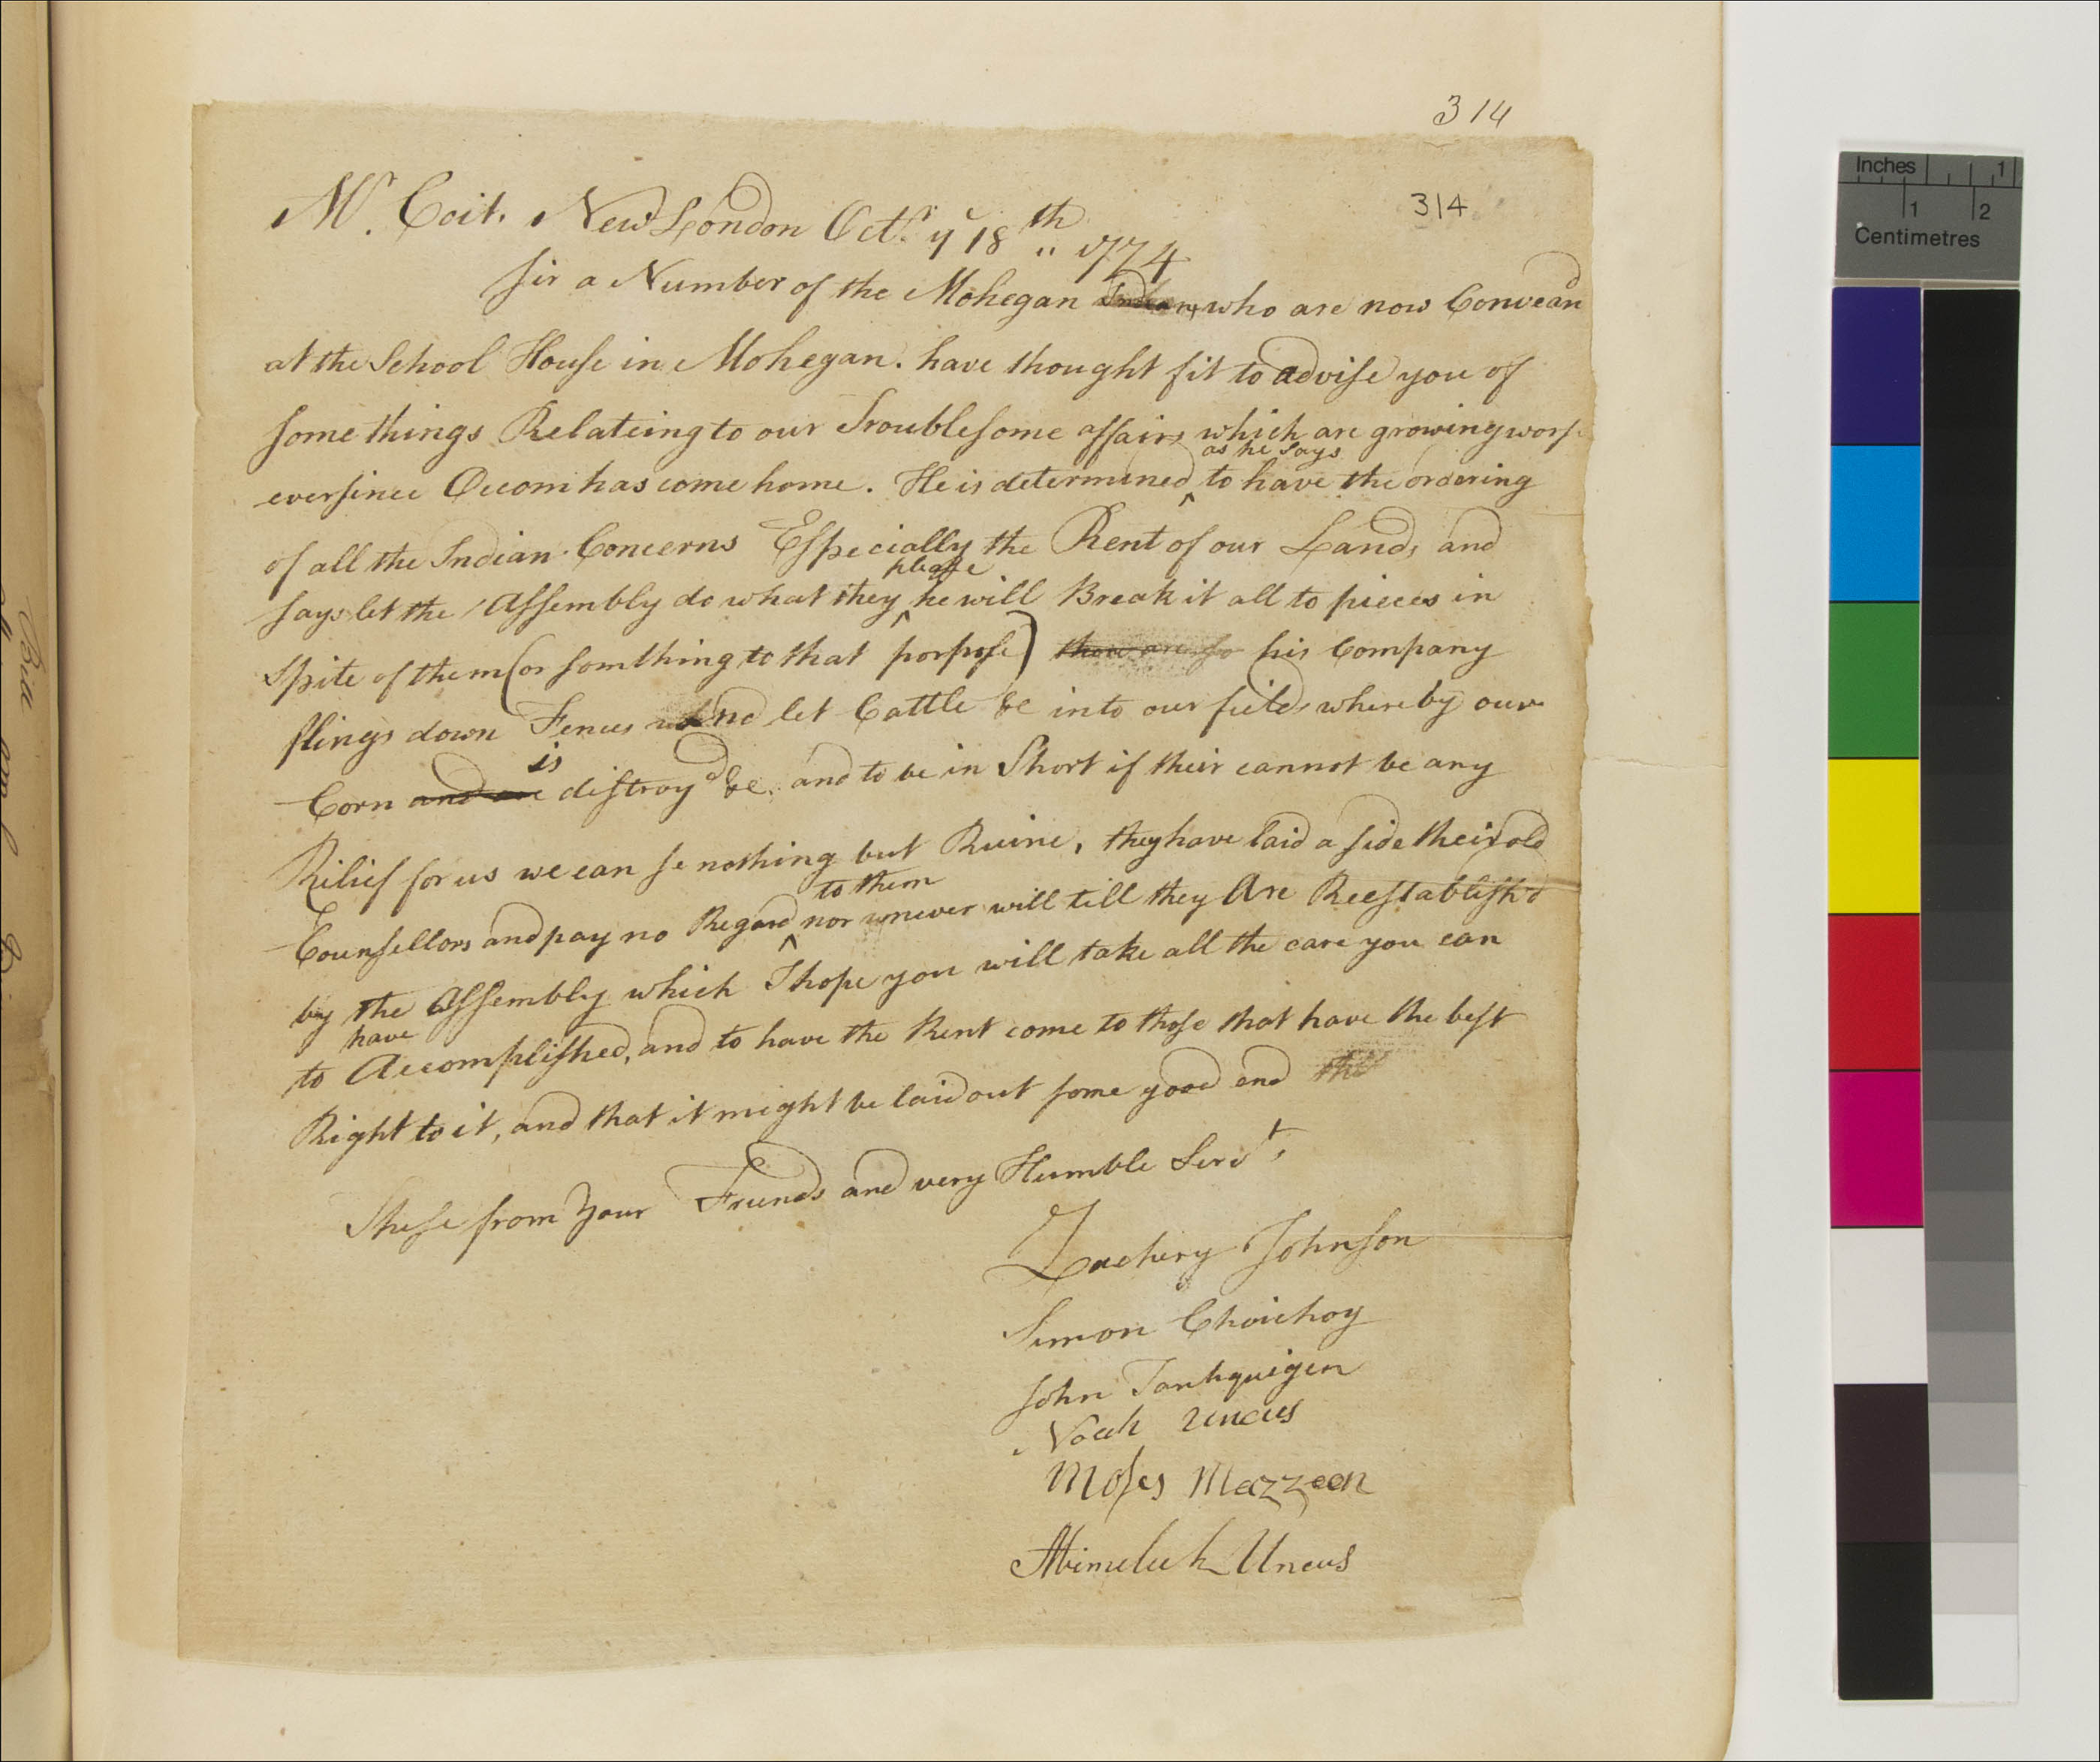 314
314
Mr. Coit. New London Octr. ye 18th 1774
Sir a Number of the Mohegan Indians who are now Convean'd
at the School House in Mohegan. have thought fit to advise you of
some things Relateing to our Troublesome affairs which are growing wors
as he says
ever since Occom has come home. He is determined ^ to have the ordering
of all the Indian Concerns Especially the Rent of our Lands, and
please
says let the Assembly do what they ^ he will Break it all to pieces in
Spite of them (or somthing to that porpose) his Company
flings down Fences and let Cattle &c into our fields whereby our
is
Corn and are distroyd &c. and to be in Short if their cannot be any
Rilief for us we can se nothing but Ruine, they have laid a side their old
to them
Counsellors and pay no Regard ^ nor never will till they Are Reestablish'd
by the Assembly which I hope you will take all the care you can
have
to Accomplished, and to have the Rent come to those that have the best
Right to it, and that it might be laid out some good end the
These from Your Friends and very Humble Servt,
Zachery Johnson
Simon Choichoy
John Tanhquigen
Noah Uncus
Moses Mazzeen
Abimeleck Uncus
Inches 1
1 2
Centimetres